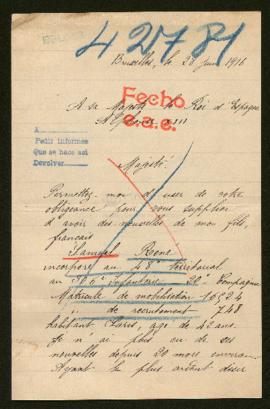 42781
Bruxelles, le 28 Juin 1916
A Sa Majesté le Roi d'Espagne
Alphonse XIII
Fecho
e.a.e.
A
Pedir informes
Que se hace así
Devolver
Majesté,
Permettez-moi d'user de votre
obligeance pour vous supplier
d'avoir des nouvelles de mon fils,
français
René
incorporé au 48e territorial
Infanterie 22e Compagnie
Matricule de mobilisation 16524
" de recrutement 748
habitant Paris, âgé de 42 ans.
Je n'ai plus eu de ses
nouvelles depuis 20 mois environ.
Ayant le plus ardent désir